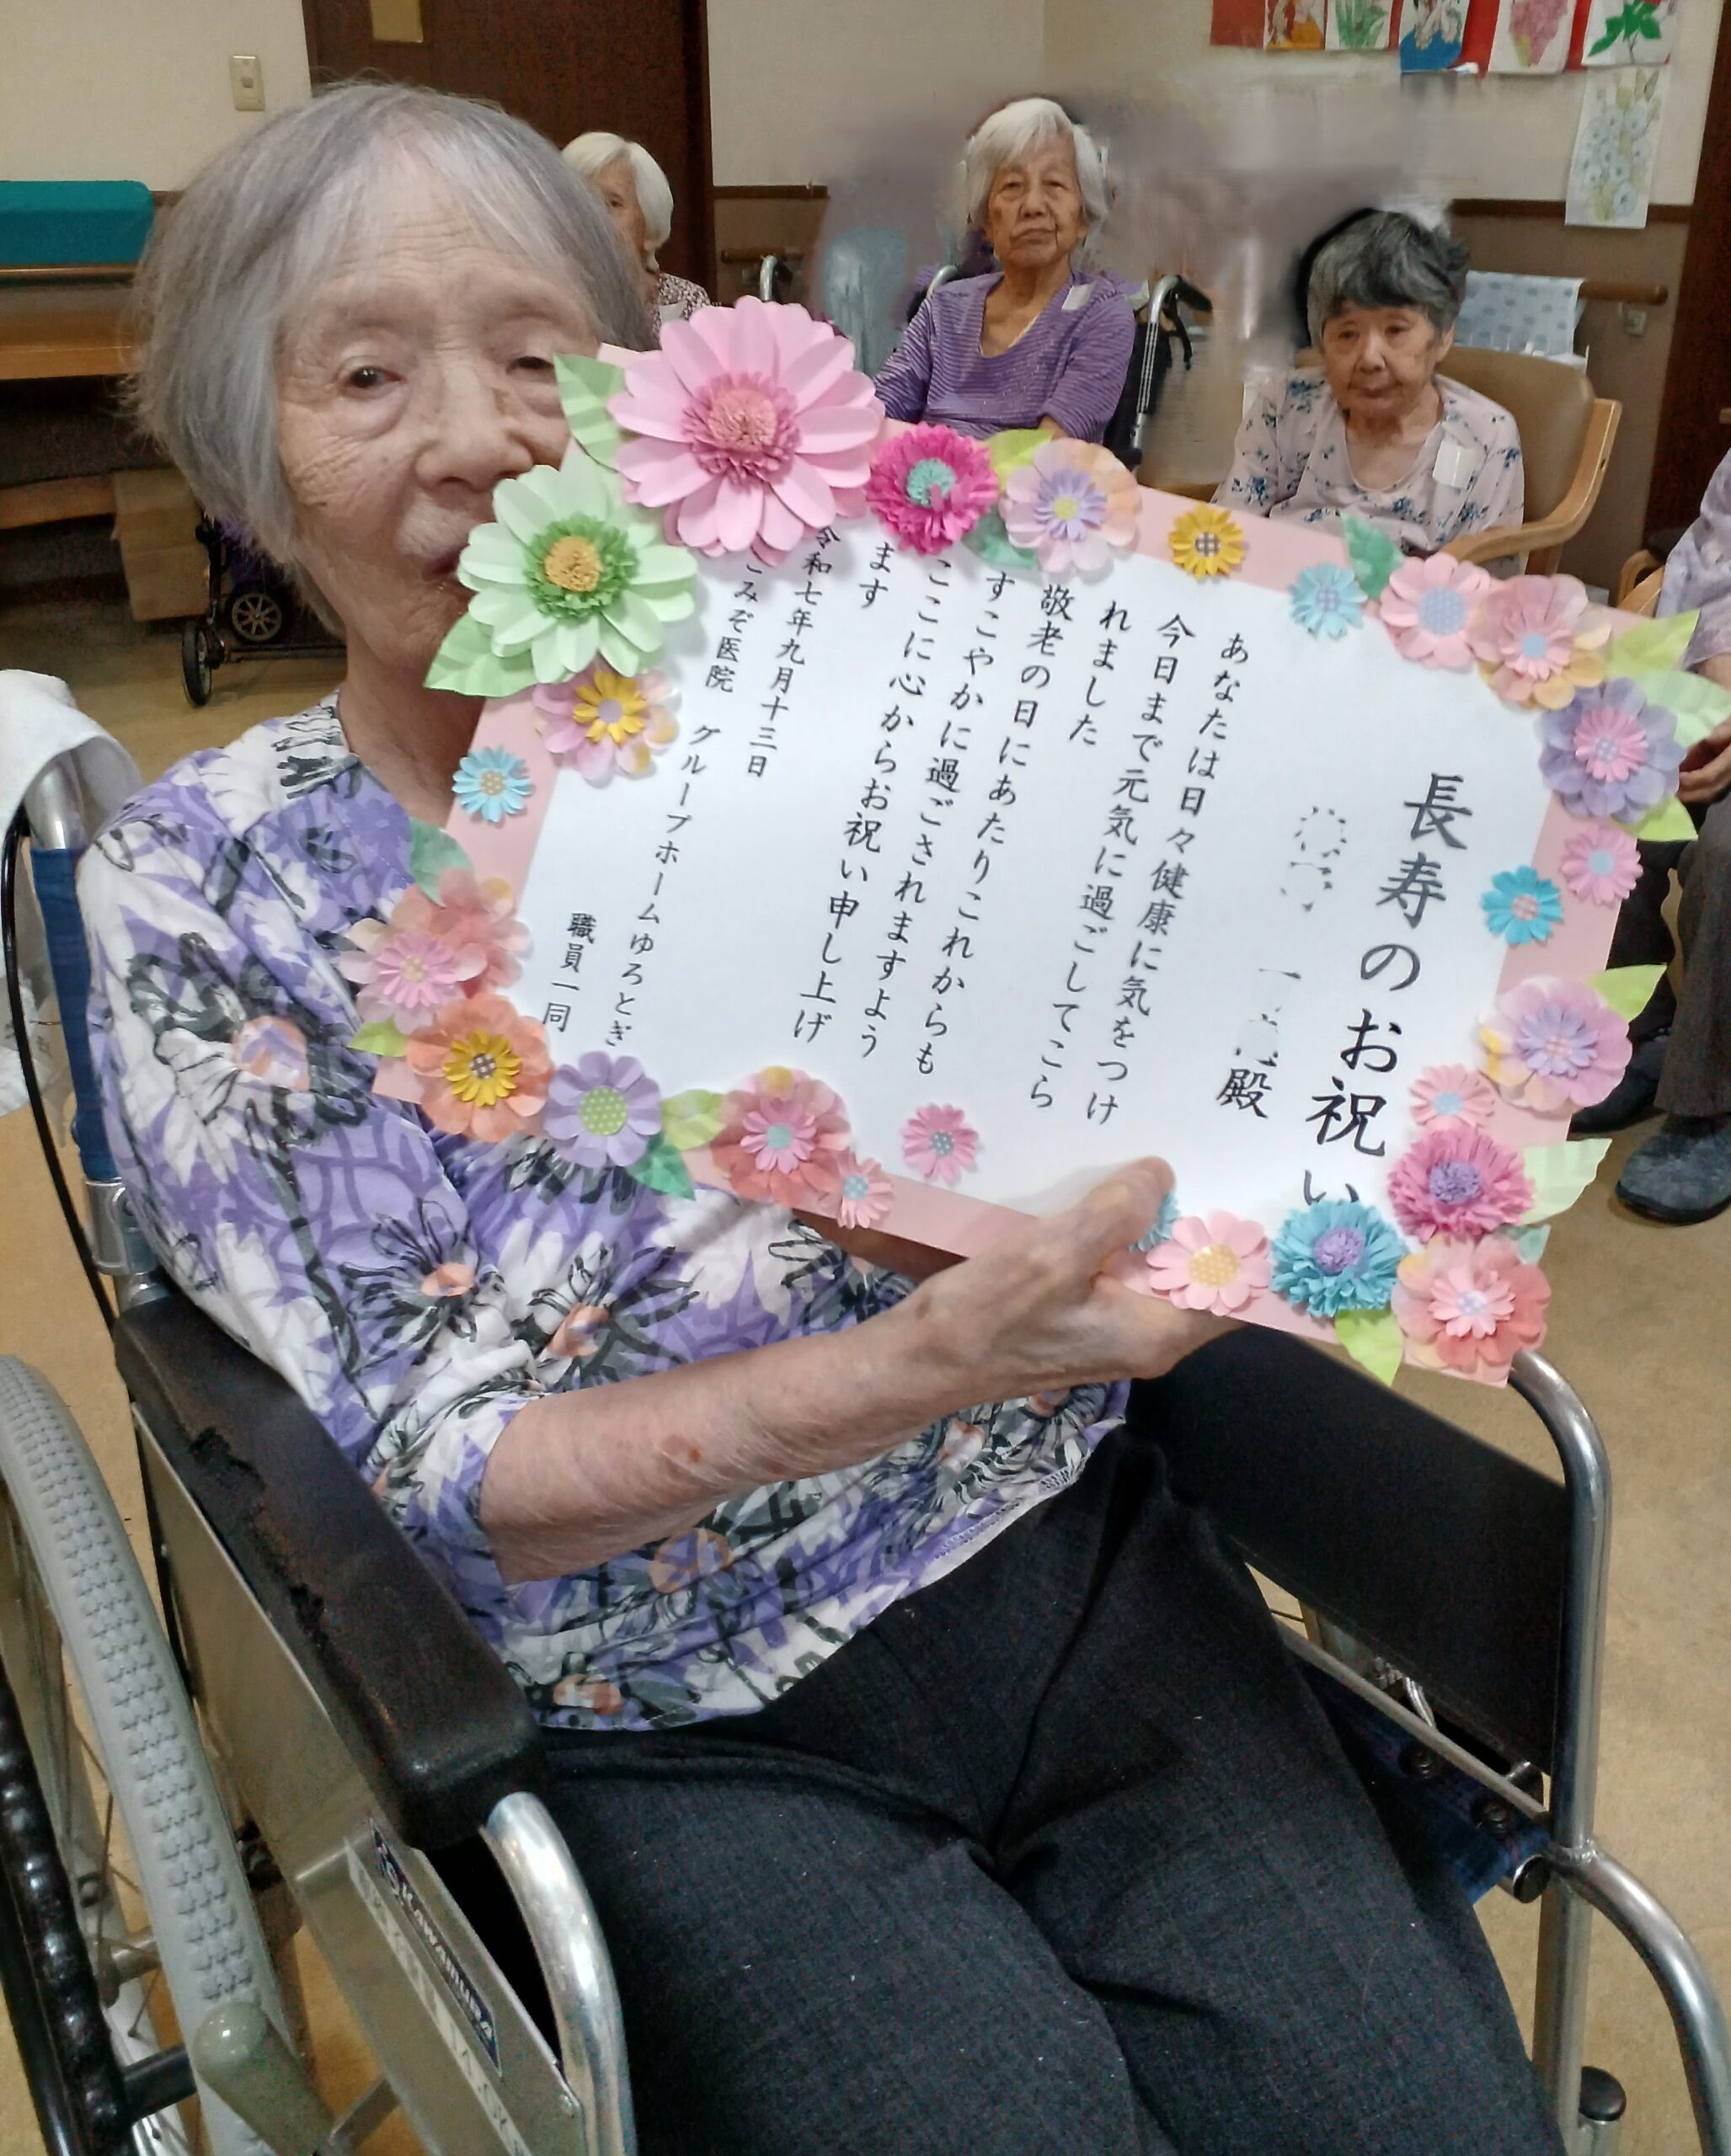 長寿のお祝い
殿
あなたは日々健康に気をつけ
今日まで元気に過ごしてこら
れました
敬老の日にあたりこれからも
すこやかに過ごされますよう
ここに心からお祝い申し上げ
ます
令和七年九月十三日
こみぞ医院 グループホームゆろとぎ
職員一同
KAWAMURA